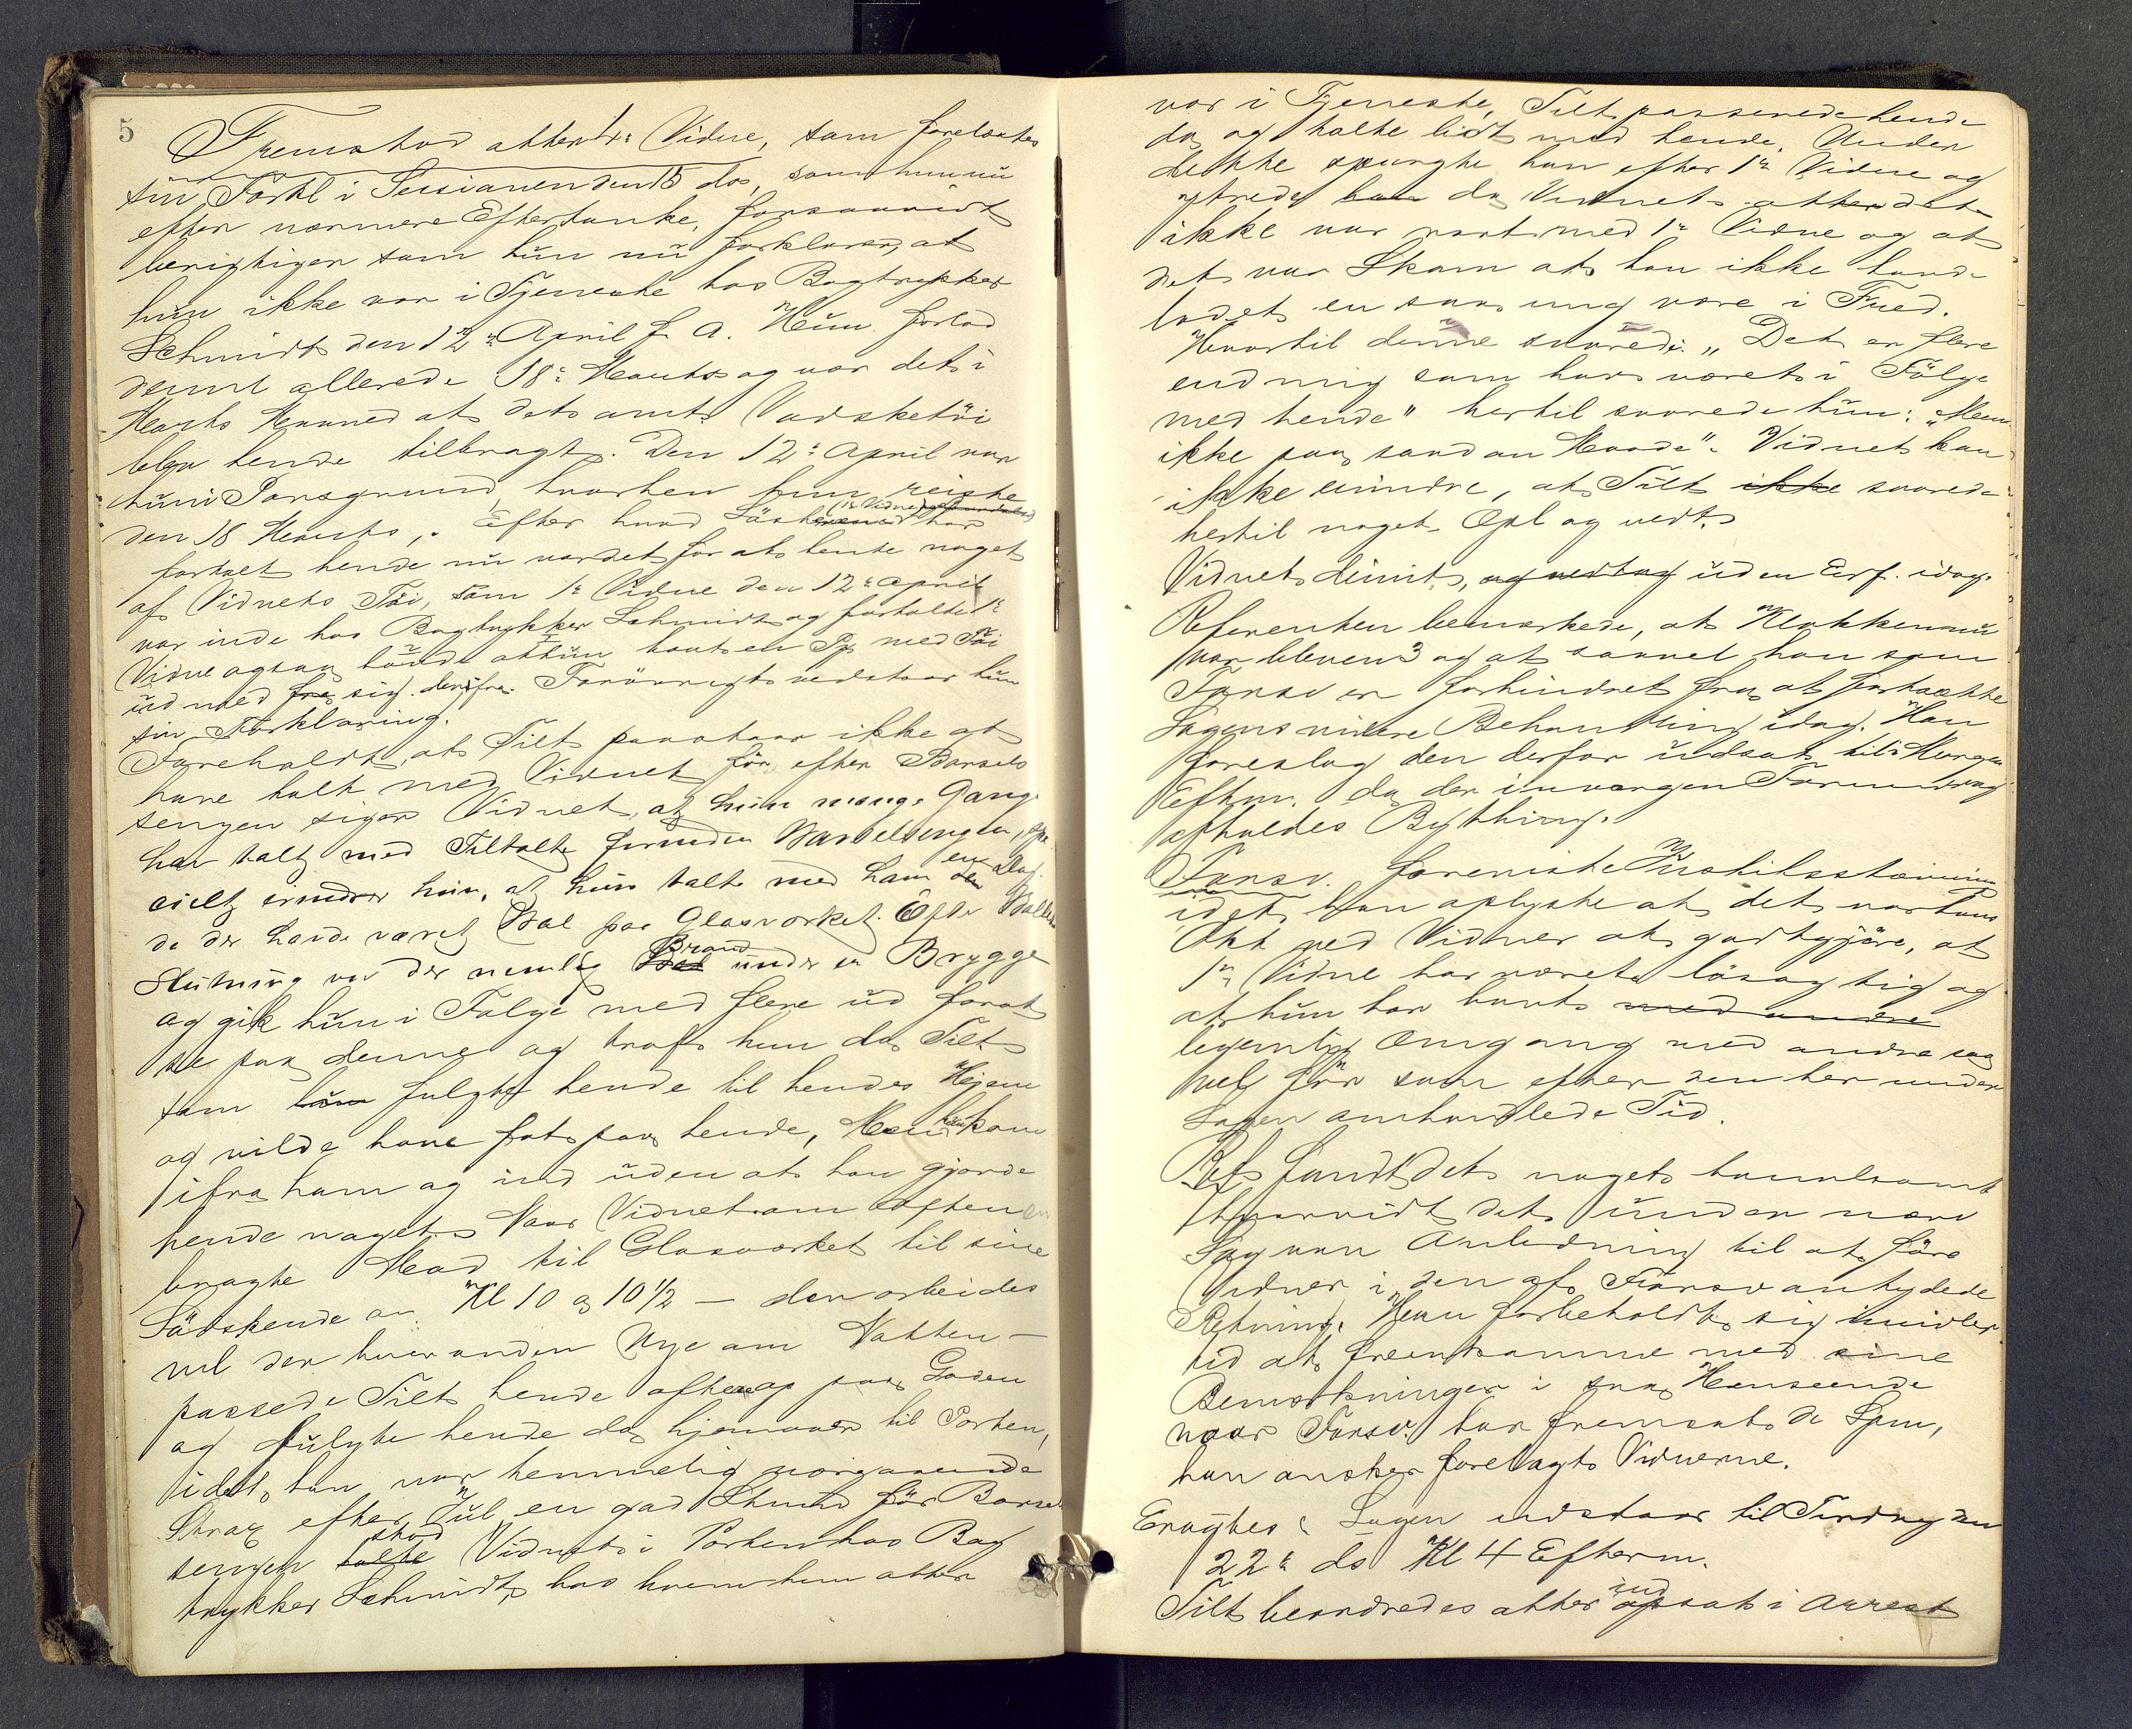 5
Fremstod atter 4de Vidne, som forelæstes
sin Forkl i Sessionen den 15 ds, som hun nu
efter nærmere Eftertanke, forsaavidt
berigtiger som hun nu forklarer, at
hun ikke var i Tjeneste hos Bogtrykker
Schmidt den 12te April f. A. Hun forlod
denne allerede 18de Marts og var det i
Marts Maaned at det omt. Vadsketöi
blev hende tilbragt. Den 12te April var
hun i Porsgrund, hvorhen hun reiste
den 18 Marts. Efter hvad Söster (1te Vidne) har
fortalt hende nu var det for at hente noget
af Vidnets Töi, som 1te Vidne den 12te April
var inde hos Bogtrykker Schmidt og fortalte 1te
Vidne ogsaa hende at hun havt en Pk med Töi
ud med fra sig derifra. Forövrigt vedstaar hun
sin Forklaring.
Foreholdt, at Tilt paastaar ikke at
have talt med Vidnet för efter Barsel
sengen siger Vidnet, at hun mange Gange
har talt med Tiltalte forinden Barselsengen, spe
cielt erindrer hun, at hun talte med ham en Dag
da der havde været Bal paa Glasværket. Efter Ballets
Slutning var der nemlig Bal Brand under en Brygge
og gik hun i Fölge med flere ud forat
se paa denne og traf hun da Tilt
som hun fulgte hende til hendes Hjem
og vilde have fat paa hende, Men hun kom
ifra ham og ind uden at han gjorde
hende noget. Naar Vidnet om Aftenen
bragte Mad til Glasværket til sine
Södskende ca. Kl 10 a 10½ — der arbeides
vel der hver anden Uge om Natten —
passede Tilt hende ofte op paa Gaden
og fulgte hende da hjemover til Porten,
idet han var temmelig nærgaaende
Strax efter Jul en god Stund för Barsel
sengen talte stod Vidnet i Porten hos Bog
trykker Schmidt, hos hvem hun atter
var i Tjeneste, Tilt passerede hende
da og talte lidt med hende. Under
dette spurgte han efter 1te Vidne og
ytrede han da Vidnet at det
ikke var rart med 1te Vidne og at
det var Skam at han ikke havde
ladet en saa ung være i Fred.
Hvortil denne svarede: „Det er flere
end mig som har været i Fölge
med hende" hertil svarede hun: „Men
ikke paa saadan Maade". Vidnet kan
ikke erindre, at Tilt ikke svarede
hertil noget. Opl og vedt.
Vidnet dimit, og vedtog uden Erf. idag.
Referenten bemærkede, at Klokken nu
var bleven 3 og at saavel han som
Forsv er forhindret fra at fortsætte
Sagens videre Behandling idag. Han
foreslog den derfor udsat til i Morgen
Efterm. da der imorgen Formiddag
afholdes Bything.
Forsv. forenede
idet han oplyste at det var hans
Agt ved Vidner at godtgjöre, at
1te Vidne har været lösagtig og
at hun har havt med andre
legemlig Omgang med andre saa
vel för som efter den her under
Sagen omhandlede Tid.
Ref. fandt det noget tvivlsomt
hvorvidt det under nærv
Sag var Anledning til at före
Vidner i den af Forsv antydede
Retning. Han forbeholdt sig imidler
tid at fremkomme med sine
Bemærkninger i saa Henseende
naar Forsv. har fremsat de Spm,
han ønsker forelagt Vidnerne.
Eragtes: Sagen udstaar til Tirsdag den
22de ds Kl 4 Efterm.
Tilt beordredes atter opsat ind i Arrest